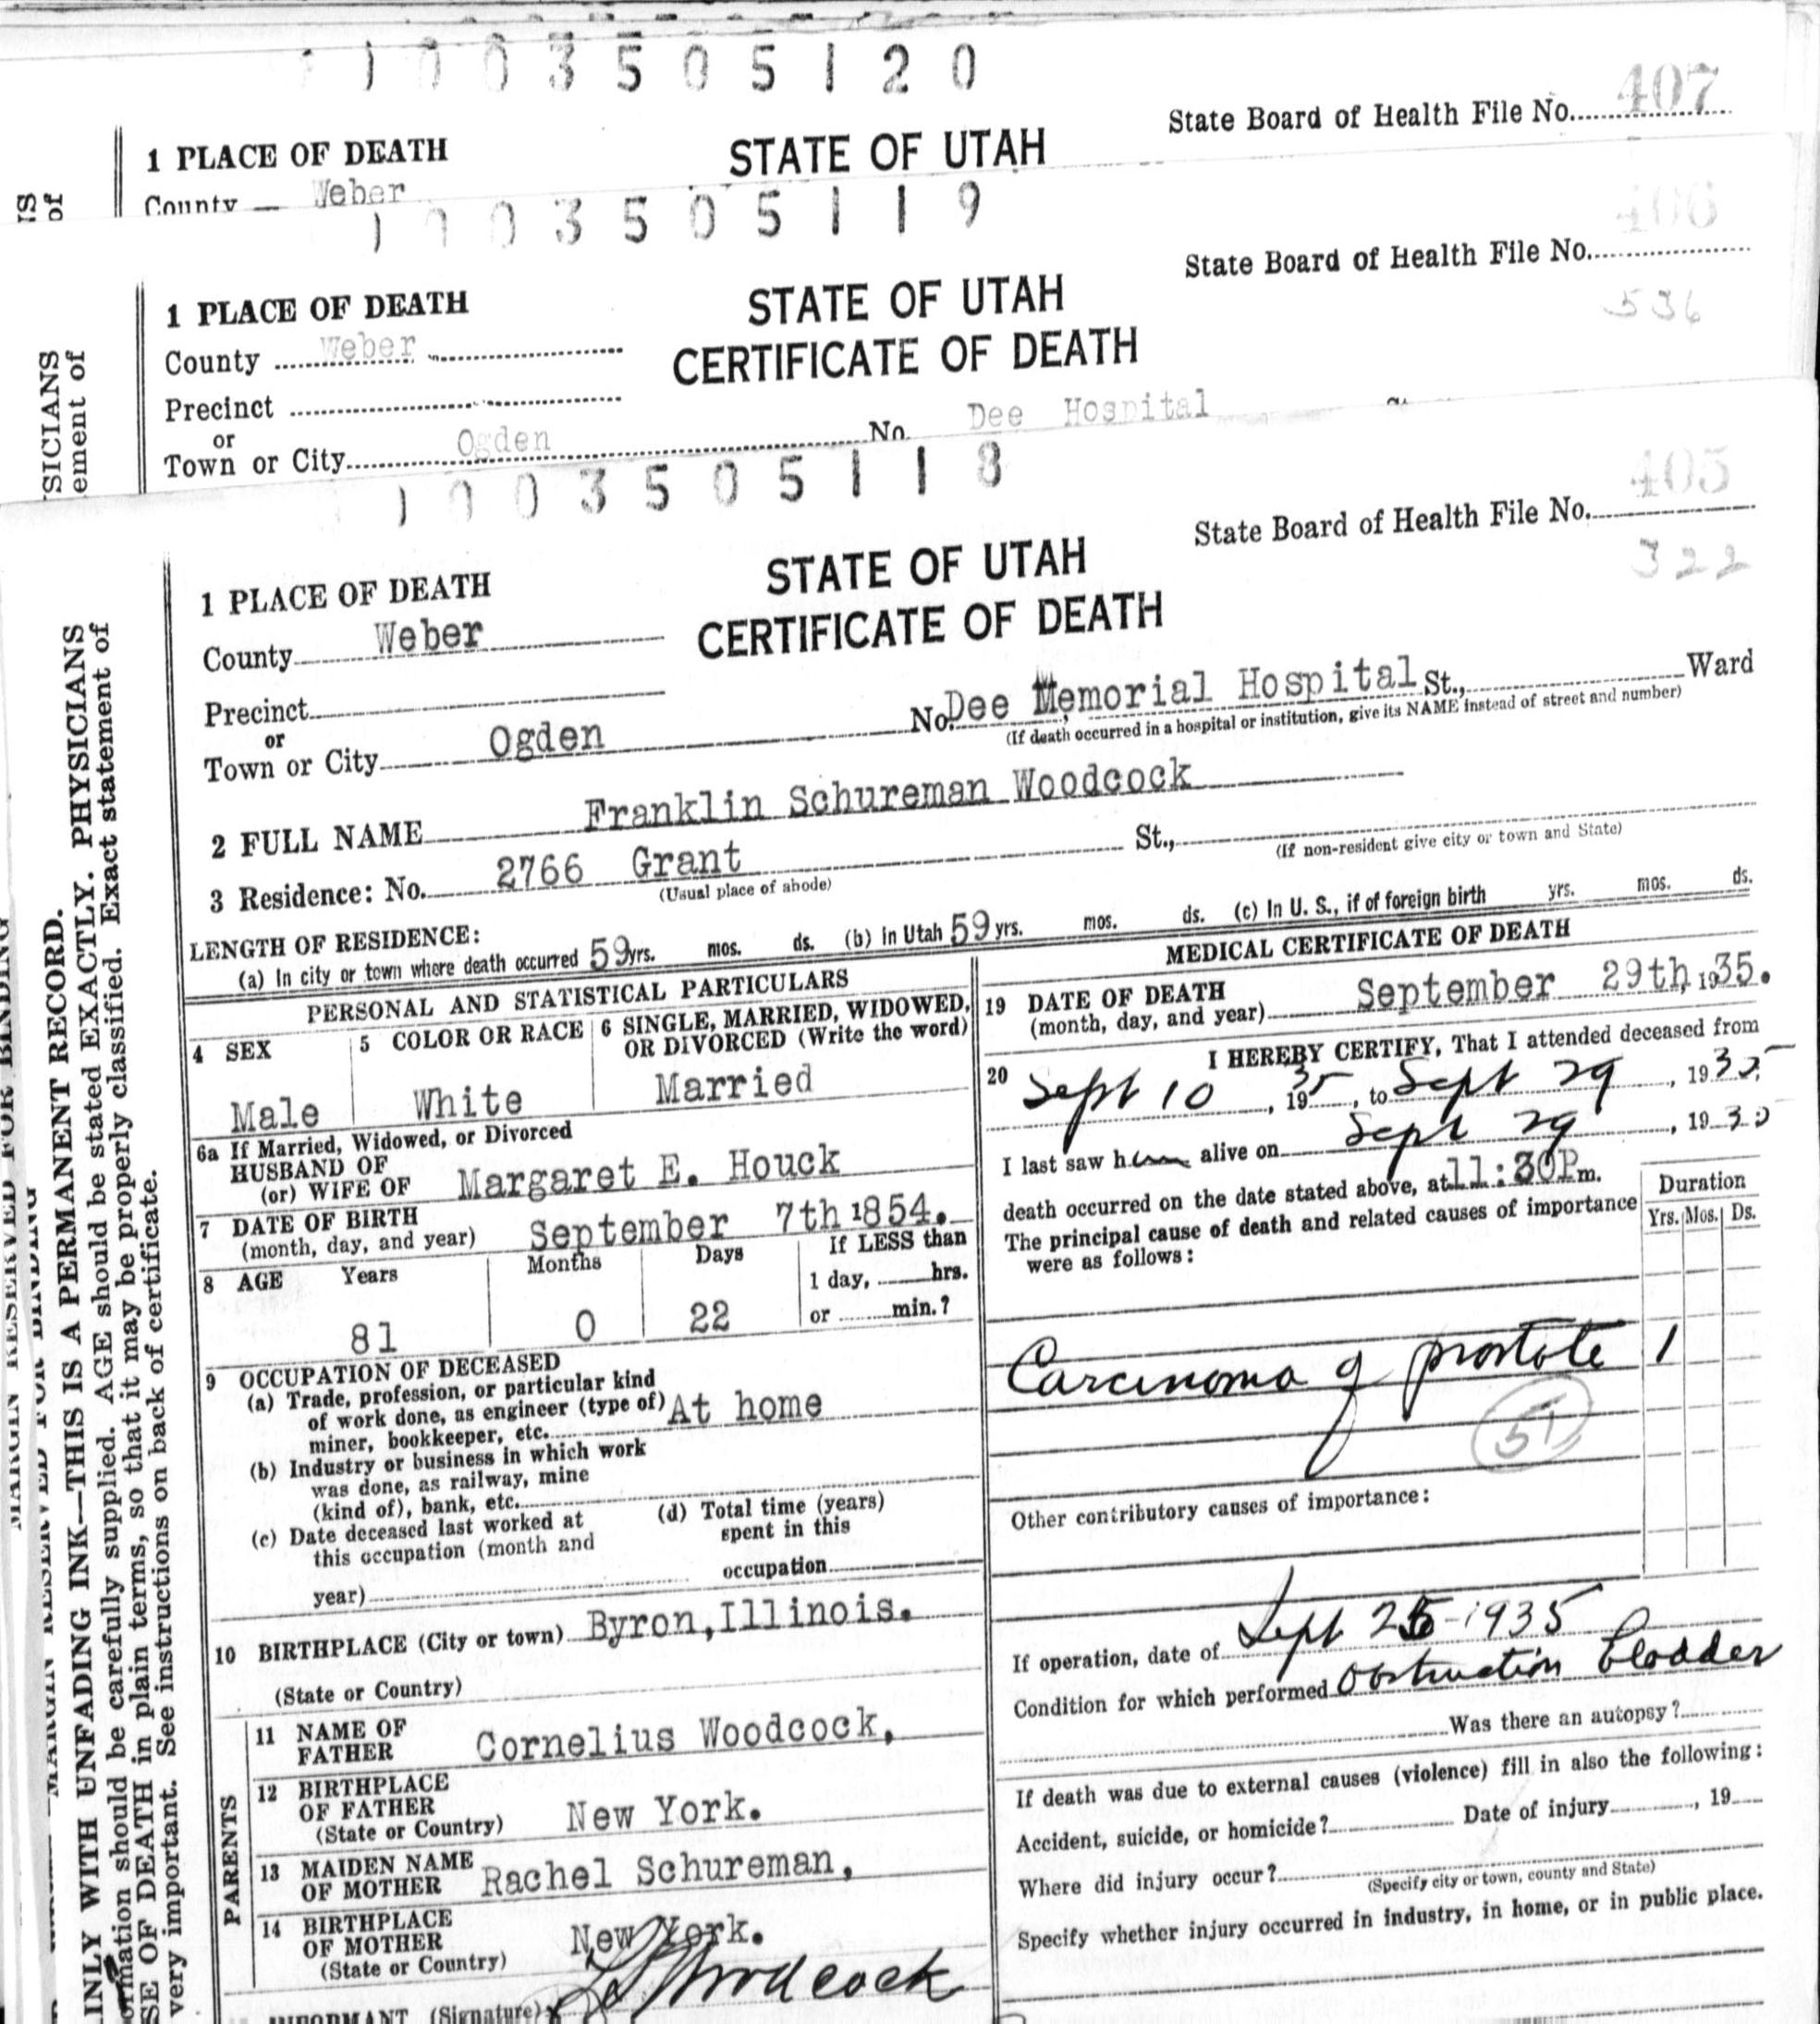 1003505120
State Board of Health File No. 407
1 PLACE OF DEATH
STATE OF UTAH
County Weber
1003505119
406
State Board of Health File No.
536
1 PLACE OF DEATH
STATE OF UTAH
County Weber
CERTIFICATE OF DEATH
Precinct
or
Town or City Ogden No. Dee Hospital
1003505118
405
State Board of Health File No.
322
1 PLACE OF DEATH
STATE OF UTAH
County Weber
CERTIFICATE OF DEATH
Precinct
or
Town or City Ogden No. Dee Memorial Hospital St., Ward
(If death occurred in a hospital or institution, give its NAME instead of street and number)
2 FULL NAME Franklin Schureman Woodcock
3 Residence: No. 2766 Grant St.,
(Usual place of abode) (If non-resident give city or town and State)
LENGTH OF RESIDENCE:
(a) In city or town where death occurred 59 yrs. mos. ds. (b) in Utah 59 yrs. mos. ds. (c) In U. S., if of foreign birth yrs. mos. ds.
PERSONAL AND STATISTICAL PARTICULARS
4 SEX
Male
5 COLOR OR RACE
White
6 SINGLE, MARRIED, WIDOWED,
OR DIVORCED (Write the word)
Married
6a If Married, Widowed, or Divorced
HUSBAND OF
(or) WIFE OF Margaret E. Houck
7 DATE OF BIRTH
(month, day, and year) September 7th 1854.
8 AGE Years Months Days If LESS than
1 day, hrs.
or min.?
81 0 22
9 OCCUPATION OF DECEASED
(a) Trade, profession, or particular kind
of work done, as engineer (type of) At home
miner, bookkeeper, etc.
(b) Industry or business in which work
was done, as railway, mine
(kind of), bank, etc.
(c) Date deceased last worked at
this occupation (month and
year)
(d) Total time (years)
spent in this
occupation
10 BIRTHPLACE (City or town) Byron, Illinois.
(State or Country)
PARENTS
11 NAME OF
FATHER Cornelius Woodcock,
12 BIRTHPLACE
OF FATHER
(State or Country) New York.
13 MAIDEN NAME
OF MOTHER Rachel Schureman,
14 BIRTHPLACE
OF MOTHER
(State or Country) New York.
INFORMANT (Signature) Woodcock
MEDICAL CERTIFICATE OF DEATH
19 DATE OF DEATH
(month, day, and year) September 29th, 1935.
20 I HEREBY CERTIFY, That I attended deceased from
Sept 10, 1935, to Sept 29, 1935
I last saw him alive on Sept 29, 1935
death occurred on the date stated above, at 11:30P m.
The principal cause of death and related causes of importance
were as follows:
Duration
Yrs. Mos. Ds.
Carcinoma of prostate 1
51
Other contributory causes of importance:
If operation, date of Sept 25-1935
Condition for which performed Obstruction bladder
Was there an autopsy?
If death was due to external causes (violence) fill in also the following:
Accident, suicide, or homicide? Date of injury , 19
Where did injury occur?
(Specify city or town, county and State)
Specify whether injury occurred in industry, in home, or in public place.
MARGIN RESERVED FOR BINDING
MARGIN RESERVED FOR BINDING
INLY WITH UNFADING INK—THIS IS A PERMANENT RECORD.
ormation should be carefully supplied. AGE should be stated EXACTLY. PHYSICIANS
SE OF DEATH in plain terms, so that it may be properly classified. Exact statement of
very important. See instructions on back of certificate.
SICIANS
ement of
NS
of